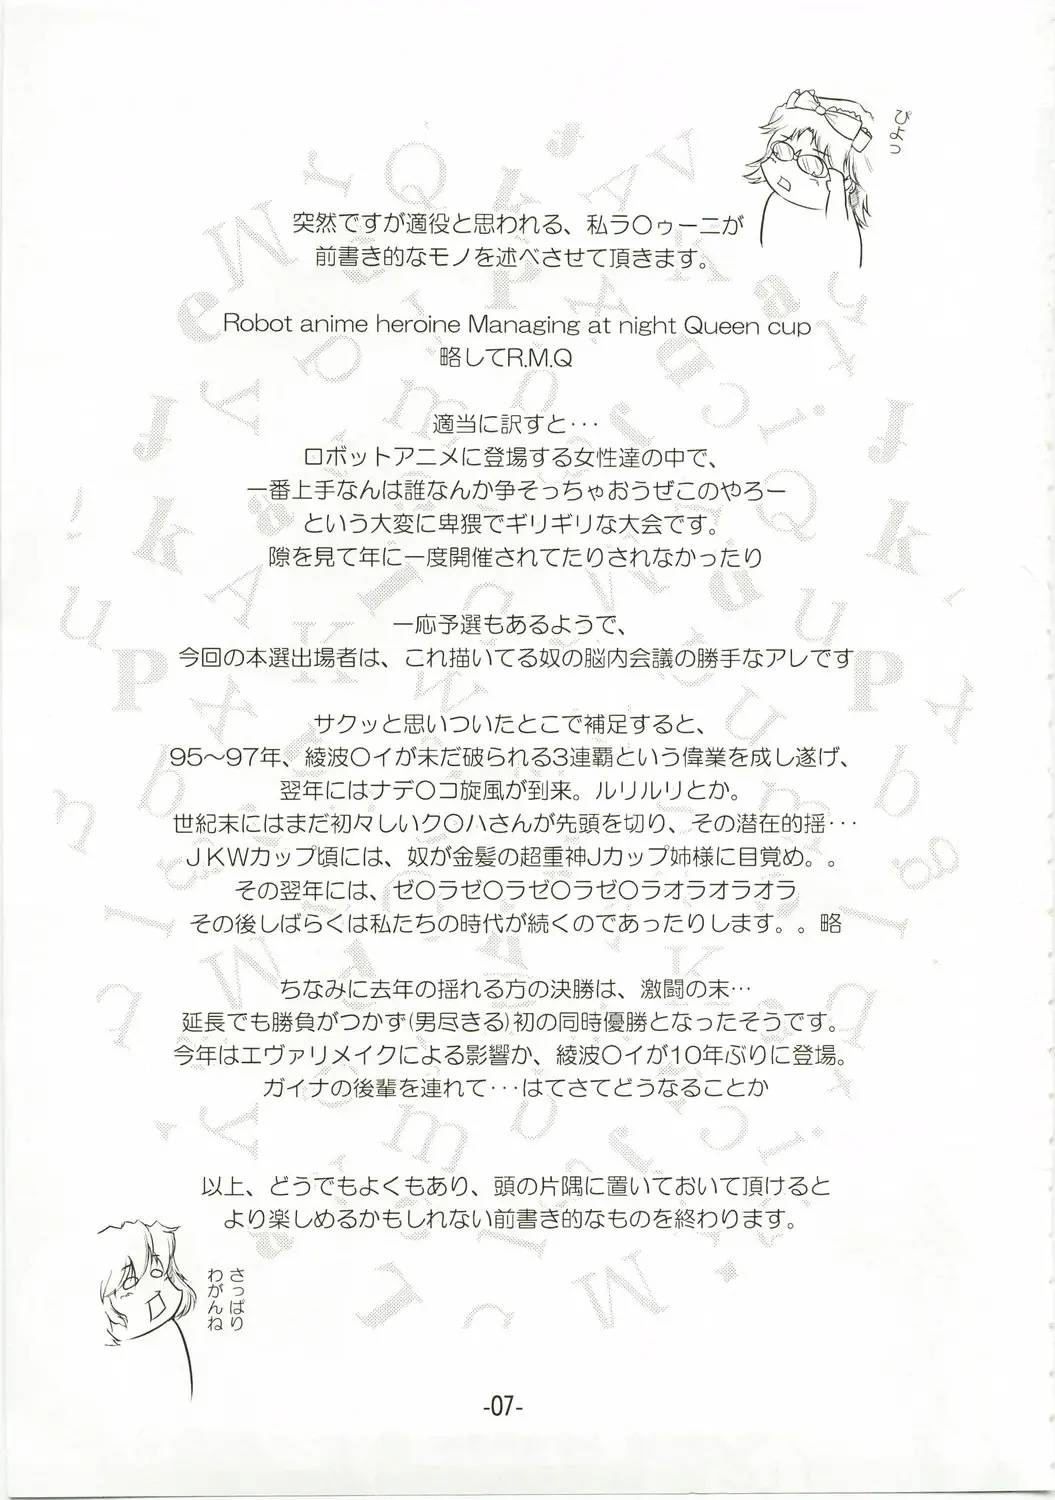 ぴよっ
突然ですが適役と思われる、私ラ〇ゥーニが
前書き的なモノを述べさせて頂きます。
Robot anime heroine Managing at night Queen cup
略してR.M.Q
適当に訳すと･･･
ロボットアニメに登場する女性達の中で、
一番上手なんは誰なんか争そっちゃおうぜこのやろー
という大変に卑猥でギリギリな大会です。
隙を見て年に一度開催されてたりされなかったり
一応予選もあるようで、
今回の本選出場者は、これ描いてる奴の脳内会議の勝手なアレです
サクッと思いついたとこで補足すると、
95～97年、綾波〇イが未だ破られる3連覇という偉業を成し遂げ、
翌年にはナデ〇コ旋風が到来。ルリルリとか。
世紀末にはまだ初々しいク〇ハさんが先頭を切り、その潜在的揺･･･
ＪＫＷカップ頃には、奴が金髪の超重神Jカップ姉様に目覚め。。
その翌年には、ゼ〇ラゼ〇ラゼ〇ラゼ〇ラオラオラオラ
その後しばらくは私たちの時代が続くのであったりします。。略
ちなみに去年の揺れる方の決勝は、激闘の末…
延長でも勝負がつかず(男尽きる)初の同時優勝となったそうです。
今年はエヴァリメイクによる影響か、綾波〇イが10年ぶりに登場。
ガイナの後輩を連れて･･･はてさてどうなることか
以上、どうでもよくもあり、頭の片隅に置いておいて頂けると
より楽しめるかもしれない前書き的なものを終わります。
さっぱり
わがんね
-07-